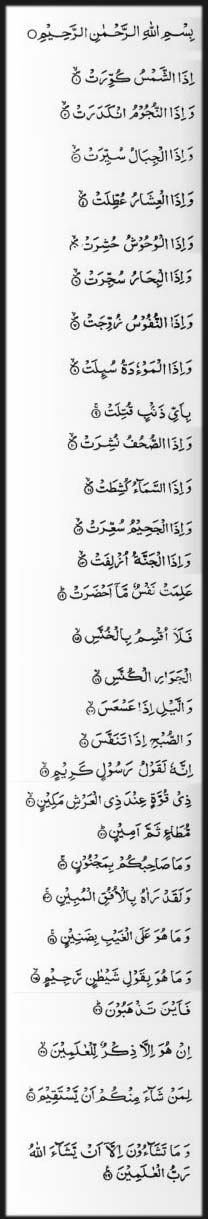 بِسْمِ اللهِ الرَّحْمٰنِ الرَّحِيْمِ
اِذَا الشَّمْسُ كُوِّرَتْ
وَاِذَا النُّجُوْمُ انْكَدَرَتْ
وَاِذَا الْجِبَالُ سُيِّرَتْ
وَاِذَا الْعِشَارُ عُطِّلَتْ
وَاِذَا الْوُحُوْشُ حُشِرَتْ
وَاِذَا الْبِحَارُ سُجِّرَتْ
وَاِذَا النُّفُوْسُ زُوِّجَتْ
وَاِذَا الْمَوْءٗدَةُ سُىِٕلَتْ
بِاَىِّ ذَنْۢبٍ قُتِلَتْ
وَاِذَا الصُّحُفُ نُشِرَتْ
وَاِذَا السَّمَآءُ كُشِطَتْ
وَاِذَا الْجَحِيْمُ سُعِّرَتْ
وَاِذَا الْجَنَّةُ اُزْلِفَتْ
عَلِمَتْ نَفْسٌ مَّاۤ اَحْضَرَتْ
فَلَاۤ اُقْسِمُ بِالْخُنَّسِ
الْجَوَارِ الْكُنَّسِ
وَالَّيْلِ اِذَا عَسْعَسَ
وَالصُّبْحِ اِذَا تَنَفَّسَ
اِنَّهٗ لَقَوْلُ رَسُوْلٍ كَرِيْمٍ
ذِىْ قُوَّةٍ عِنْدَ ذِى الْعَرْشِ مَكِيْنٍ
مُّطَاعٍ ثَمَّ اَمِيْنٍ
وَمَا صَاحِبُكُمْ بِمَجْنُوْنٍ
وَلَقَدْ رَاٰهُ بِالْاُفُقِ الْمُبِيْنِ
وَمَا هُوَ عَلَى الْغَيْبِ بِضَنِيْنٍ
وَمَا هُوَ بِقَوْلِ شَيْطٰنٍ رَّجِيْمٍ
فَاَيْنَ تَذْهَبُوْنَ
اِنْ هُوَ اِلَّا ذِكْرٌ لِّلْعٰلَمِيْنَ
لِمَنْ شَآءَ مِنْكُمْ اَنْ يَّسْتَقِيْمَ
وَمَا تَشَآءُوْنَ اِلَّاۤ اَنْ يَّشَآءَ اللهُ
رَبُّ الْعٰلَمِيْنَ